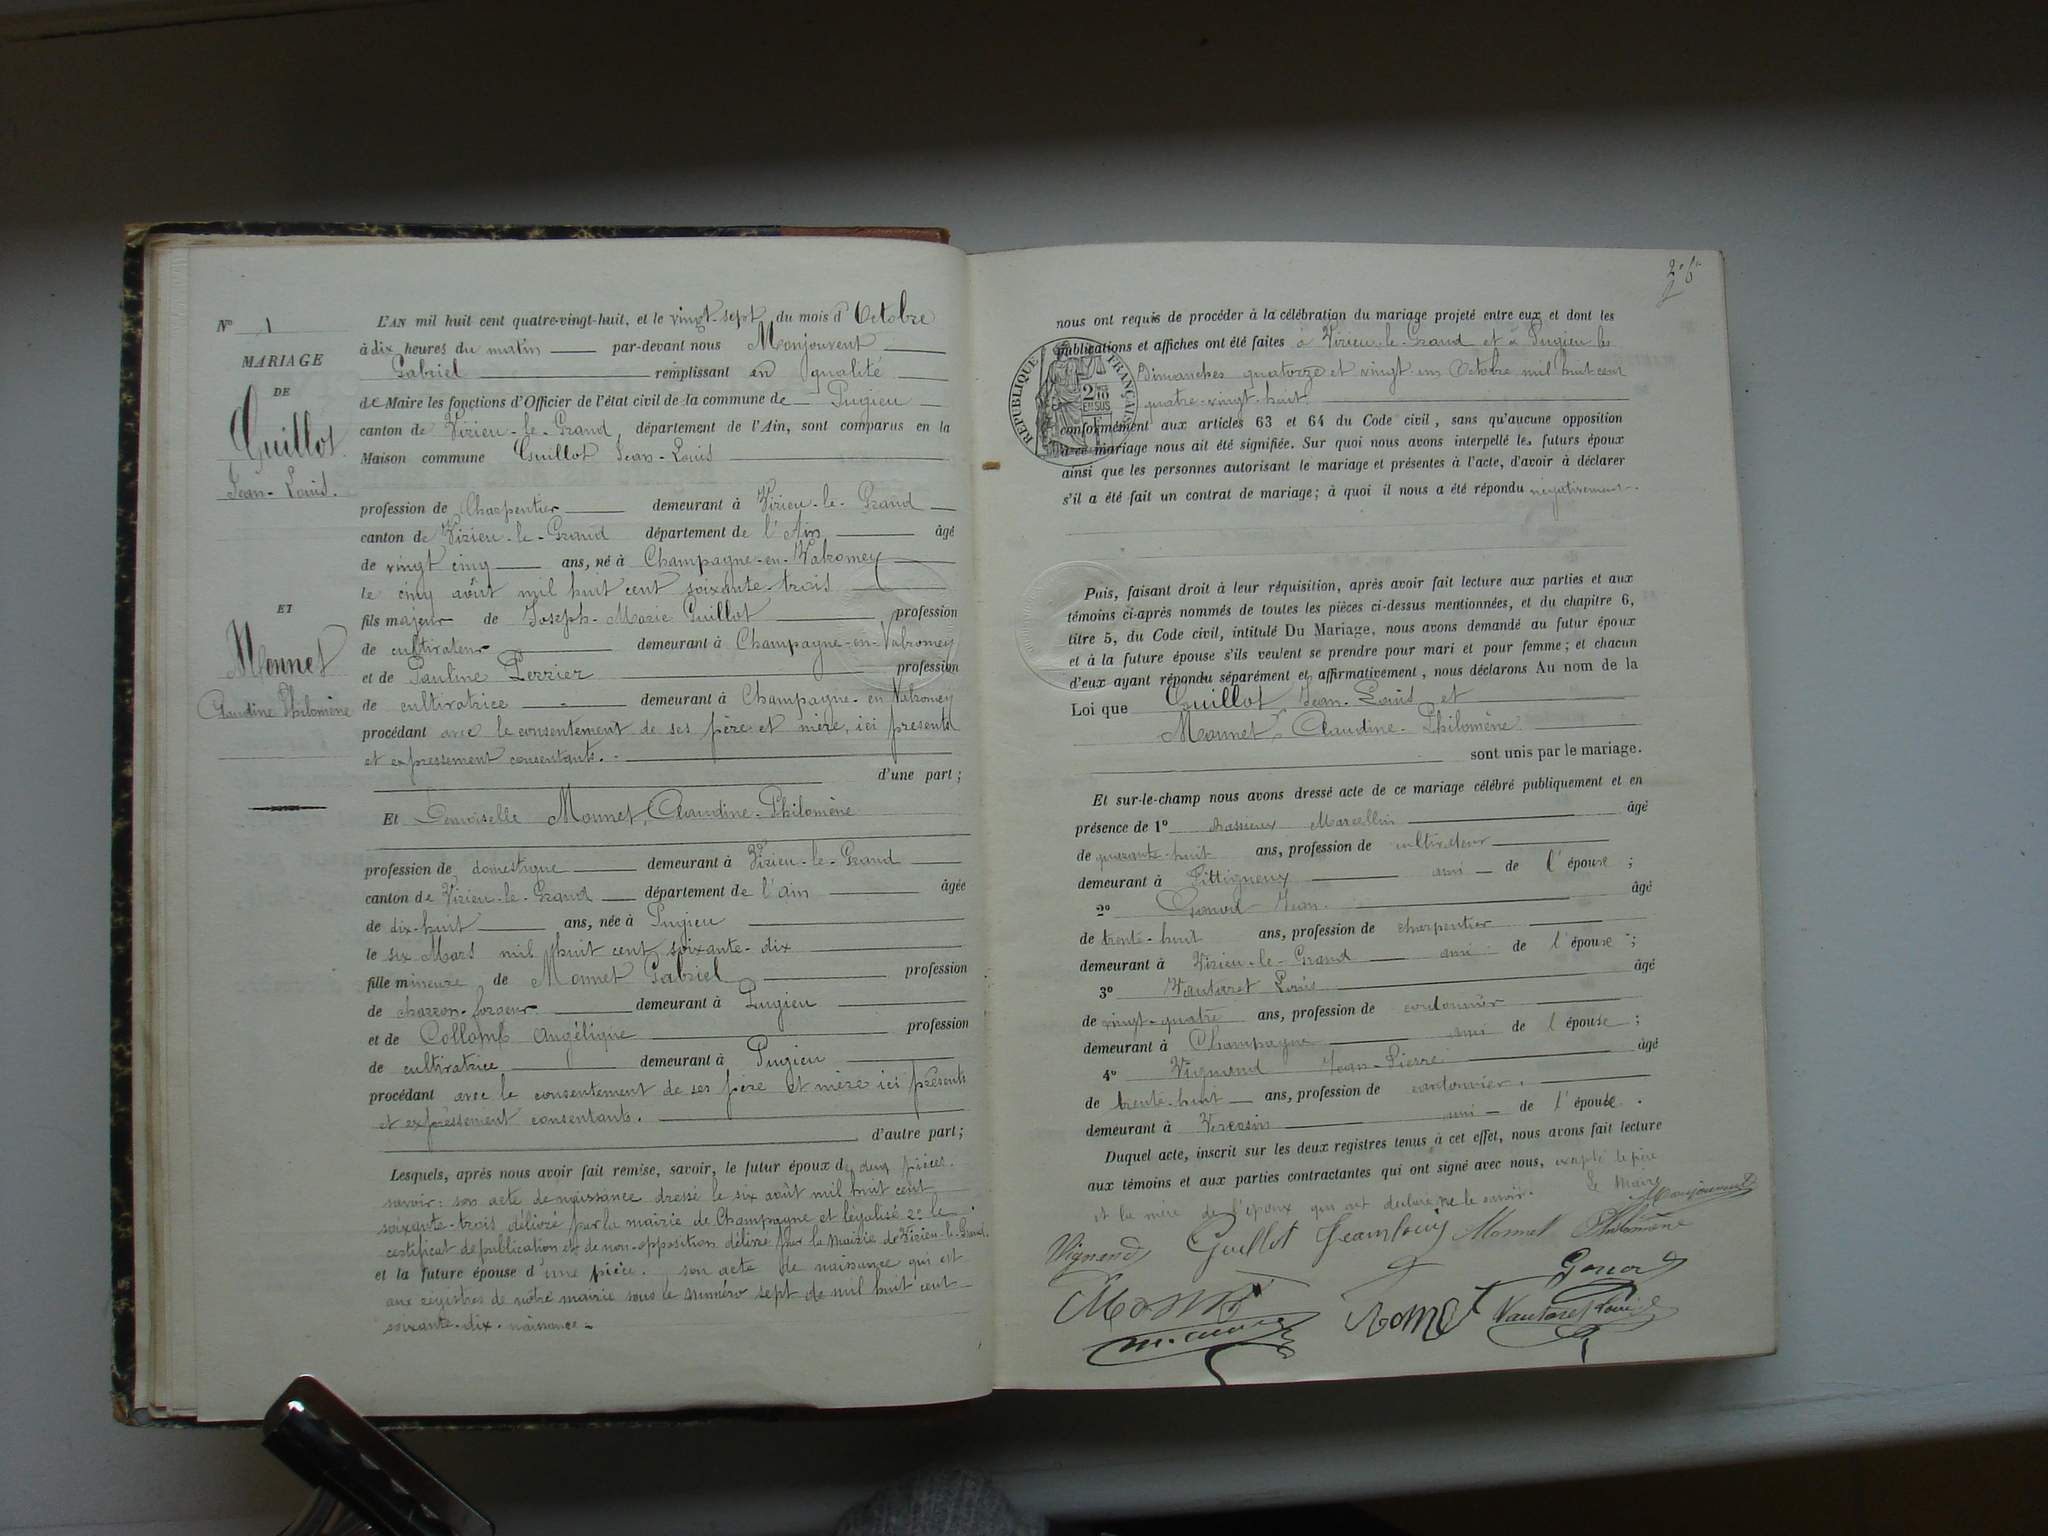 N° 1
MARIAGE
DE
Guillot
Jean-Louis.
ET
Monnet
Claudine Philomène
L'AN mil huit cent quatre-vingt-huit, et le vingt-sept du mois d'Octobre
à dix heures du matin par-devant nous Monjouvent
Gabriel remplissant en qualité
de Maire les fonctions d'Officier de l'état civil de la commune de Pugieu
canton de Virieu-le-Grand, département de l'Ain, sont comparus en la
Maison commune Guillot Jean-Louis
profession de Charpentier demeurant à Virieu-le-Grand
canton de Virieu-le-Grand département de l'Ain âgé
de vingt cinq ans, né à Champagne-en-Valromey
le cinq août mil huit cent soixante-trois
fils majeur de Joseph-Marie Guillot profession
de cultivateur demeurant à Champagne-en-Valromey
et de Pauline Perrier profession
de cultivatrice demeurant à Champagne-en Valromey
procédant avec le consentement de ses père et mère, ici présents
et expressement consentants.
d'une part;
Et Demoiselle Monnet, Claudine-Philomène
profession de domestique demeurant à Virieu-le-Grand
canton de Virieu-le-Grand département de l'ain âgée
de dix-huit ans, née à Pugieu
le six Mars mil huit cent soixante-dix
fille mineure de Monnet Gabriel profession
de charron-forgeur demeurant à Pugieu
et de Collomb Angélique profession
de cultivatrice demeurant à Pugieu
procédant avec le consentement de ses père et mère ici présents
et expressement consentants.
d'autre part;
Lesquels, après nous avoir fait remise, savoir, le futur époux de deux pièces.
savoir: son acte de naissance dressé le six août mil huit cent
soixante-trois délivré par la mairie de Champagne et légalisé 2° le
certificat de publication et de non-opposition délivré par la Mairie de Virieu-le-Grand.
et la future épouse d'une pièce. son acte de naissance qui est
aux registres de nôtre mairie sous le numéro sept de mil huit cent
soixante-dix. naissance
nous ont requis de procéder à la célébration du mariage projeté entre eux et dont les
publications et affiches ont été faites à Virieu-le-Grand et à Pugieu les
Dimanches quatorze et vingt un Octobre mil huit cent
quatre-vingt-huit
RÉPUBLIQUE FRANÇAISE
2/10 EN SUS
conformément aux articles 63 et 64 du Code civil, sans qu'aucune opposition
à ce mariage nous ait été signifiée. Sur quoi nous avons interpellé les futurs époux
ainsi que les personnes autorisant le mariage et présentes à l'acte, d'avoir à déclarer
s'il a été fait un contrat de mariage; à quoi il nous a été répondu négativement.
Puis, faisant droit à leur réquisition, après avoir fait lecture aux parties et aux
témoins ci-après nommés de toutes les pièces ci-dessus mentionnées, et du chapitre 6,
titre 5, du Code civil, intitulé Du Mariage, nous avons demandé au futur époux
et à la future épouse s'ils veulent se prendre pour mari et pour femme; et chacun
d'eux ayant répondu séparément et affirmativement, nous déclarons Au nom de la
Loi que Guillot Jean-Louis et
Monnet, Claudine-Philomène
sont unis par le mariage.
Et sur-le-champ nous avons dressé acte de ce mariage célébré publiquement et en
présence de 1° Marcellin âgé
de quarante-huit ans, profession de cultivateur
demeurant à ami de l'épouse;
2° Gonod Jean âgé
de trente-huit ans, profession de charpentier
demeurant à Virieu-le-Grand ami de l'épouse;
3° Vautaret Louis âgé
de vingt-quatre ans, profession de cordonnier
demeurant à Champagne ami de l'épouse;
4° Vignand Jean-Pierre âgé
de trente-huit ans, profession de cordonnier.
demeurant à ami de l'épouse.
Duquel acte, inscrit sur les deux registres tenus à cet effet, nous avons fait lecture
aux témoins et aux parties contractantes qui ont signé avec nous, excepté le père
et la mère de l'époux qui ont déclaré ne le savoir.
Le Maire
Monjouvent
Vignand Guillot Jean louis Monnet Philomène
Gonod
Monet Vautaret Louis